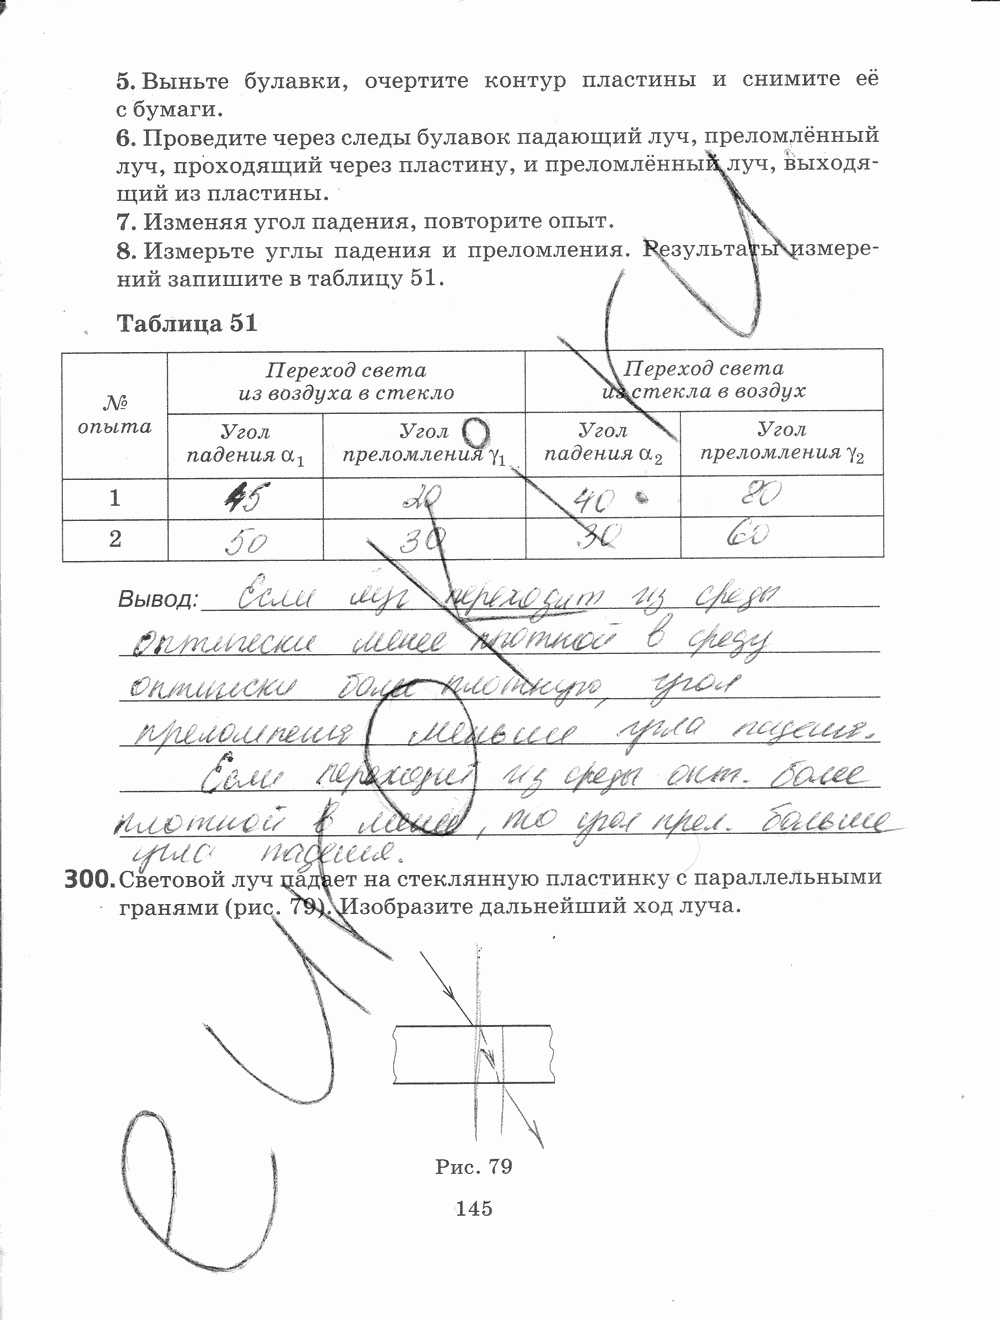 5. Выньте булавки, очертите контур пластины и снимите её
с бумаги.
6. Проведите через следы булавок падающий луч, преломлённый
луч, проходящий через пластину, и преломлённый луч, выходя-
щий из пластины.
7. Изменяя угол падения, повторите опыт.
8. Измерьте углы падения и преломления. Результаты измере-
ний запишите в таблицу 51.
Таблица 51
№ опыта
Переход света
из воздуха в стекло
Переход света
из стекла в воздух
Угол падения α₁
Угол преломления γ₁
Угол падения α₂
Угол преломления γ₂
1 45 20 40 80
2 50 30 30 60
Вывод: Если луч переходит из среды
оптически менее плотной в среду
оптически более плотную, угол
преломления меньше угла падения.
Если переходит из среды опт. более
плотной в менее, то угол прел. больше
угла падения.
300. Световой луч падает на стеклянную пластинку с параллельными
гранями (рис. 79). Изобразите дальнейший ход луча.
Рис. 79
145